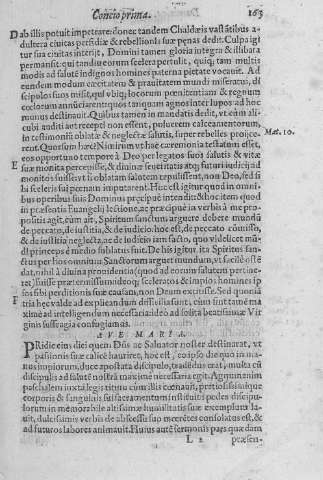 Concio prima. 163
Dab illis potuit impetrare: donec tandem Chaldæis vastãtibus a-
dultera ciuitas perfidiæ & rebellionis suæ pęnas dedit. Culpa igi
tur sua ciuitas interijt, Domini tamen gloria integra & illibata
permansit: qui tandiu eorum scelera pertulit, quiq; tam multis
modis ad salutẽ indignos homines paterna pietate vocauit. Ad
eundem modum cæcitatem & prauitatem mundi miseratus, di
scipulos suos misit, qui vbiq; locorum pœnitentiam & regnum
cœlorum annũciarent: quos tanquam agnos inter lupos ad hoc
munus destinauit. Quibus tamen in mandatis dedit, vt cum ali-
cubi auditi aut recepti non essent, puluerem calceamentorum,
in testimoniũ oblatæ & neglectæ salutis, super rebelles proijce-
rent. Quorsum hæc? Nimirum vt hæc ceremonia testatum esset,
Mat. 10.
eos opportuno tempore à Deo per legatos suos salutis & vitæ
suæ monita percepisse, & diuinæ seueritatis atq; futuri iudicij ad
monitos fuisse: vt si oblatam salutem repulissent, non Deo, sed si
bi sceleris sui pœnam imputarent. Huc est igitur quod in omni-
bus operibus suis Dominus præcipuè intendit: & hoc item quod
in præsentis Euangelij lectione, ac præcipuè in verbis à me pro-
positis agit, cum ait, Spiritum sanctum arguere debere mundũ
de peccato, de iustitia, & de iudicio. hoc est, de peccato cõmisso,
& de iustitia neglecta, ac de iudicio iam facto, quo videlicet mũ-
di princeps è medio sublatus fuit. De his igitur ita Spiritus san-
ctus per hos omnium Sanctorum arguet mundum, vt facilè osté
dat, nihil à diuina prouidentia (quod ad eorum salutem pertine-
ret) fuisse prætermissum: ideoq; sceleratos & impios homines i-
psos sibi perditionis suæ causam, non Deum extitisse. Sed quoniã
tria hęc valde ad explicandum difficilia sunt, cùm sint tamẽ ma
ximè ad intelligendum necessaria: ideo ad solita beatissimæ Vir
ginis suffragia confugiamus.
AVE MARIA.
PRidie eius diei quem Dñs ac Saluator noster destinarat, vt
passionis suæ calicẽ hauriret, hoc est, eo ipso die quo in ma-
nus impiorum, duce apostata discipulo, tradẽdus erat, multa cũ
discipulis ad salutẽ nostrã maximè necessaria egit. Agnum enim
paschalem iuxta legis ritum cùm illis cœnauit, pretiosissimique
corporis & sanguinis sui sacramentum instituit: pedes discipu-
lorum in memorabile altissimæ humilitatis suæ exemplum la-
uit, dulcissimis verbis de abscessu suo mœrentes consolatus est, &
ad futuros labores animauit. Huius autẽ sermonis pars quædam
L 2 præsen-